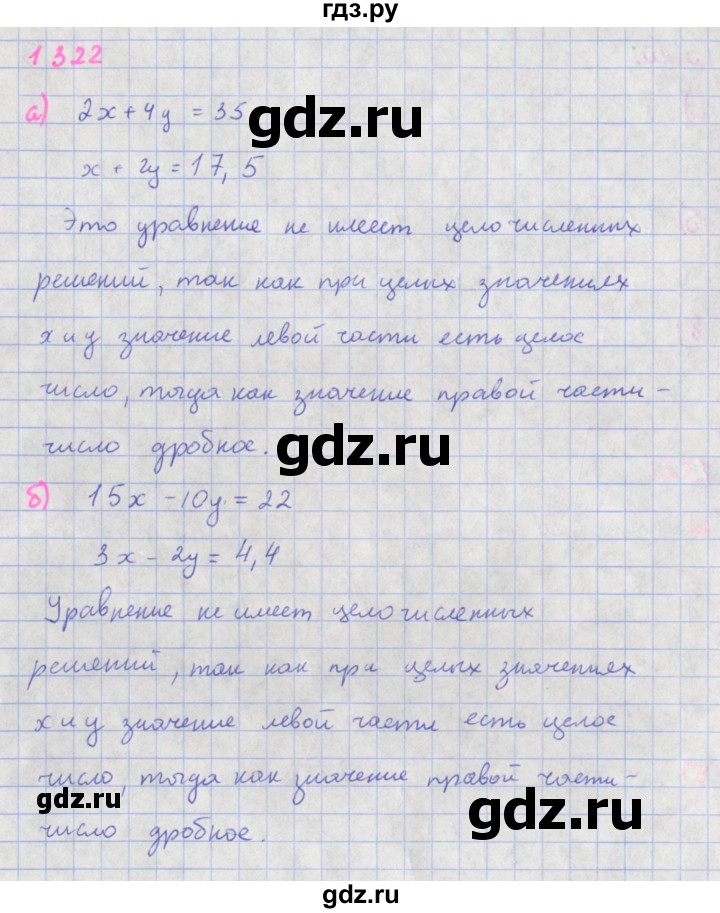 гдз.ру
1322
а) 2x + 4y = 35
gdz.ru
x + 2y = 17,5
Это уравнение не имеет целочисленных
решений, так как при целых значениях
x и y значение левой части есть целое
число, тогда как значение правой части -
число дробное.
gdz.ru
б) 15x - 10y = 22
3x - 2y = 4,4
Уравнение не имеет целочисленных
решений, так как при целых значениях
x и y значение левой части есть целое
число, тогда как значение правой части -
gdz.ru
gdz.ru
число дробное.
gdz.ru